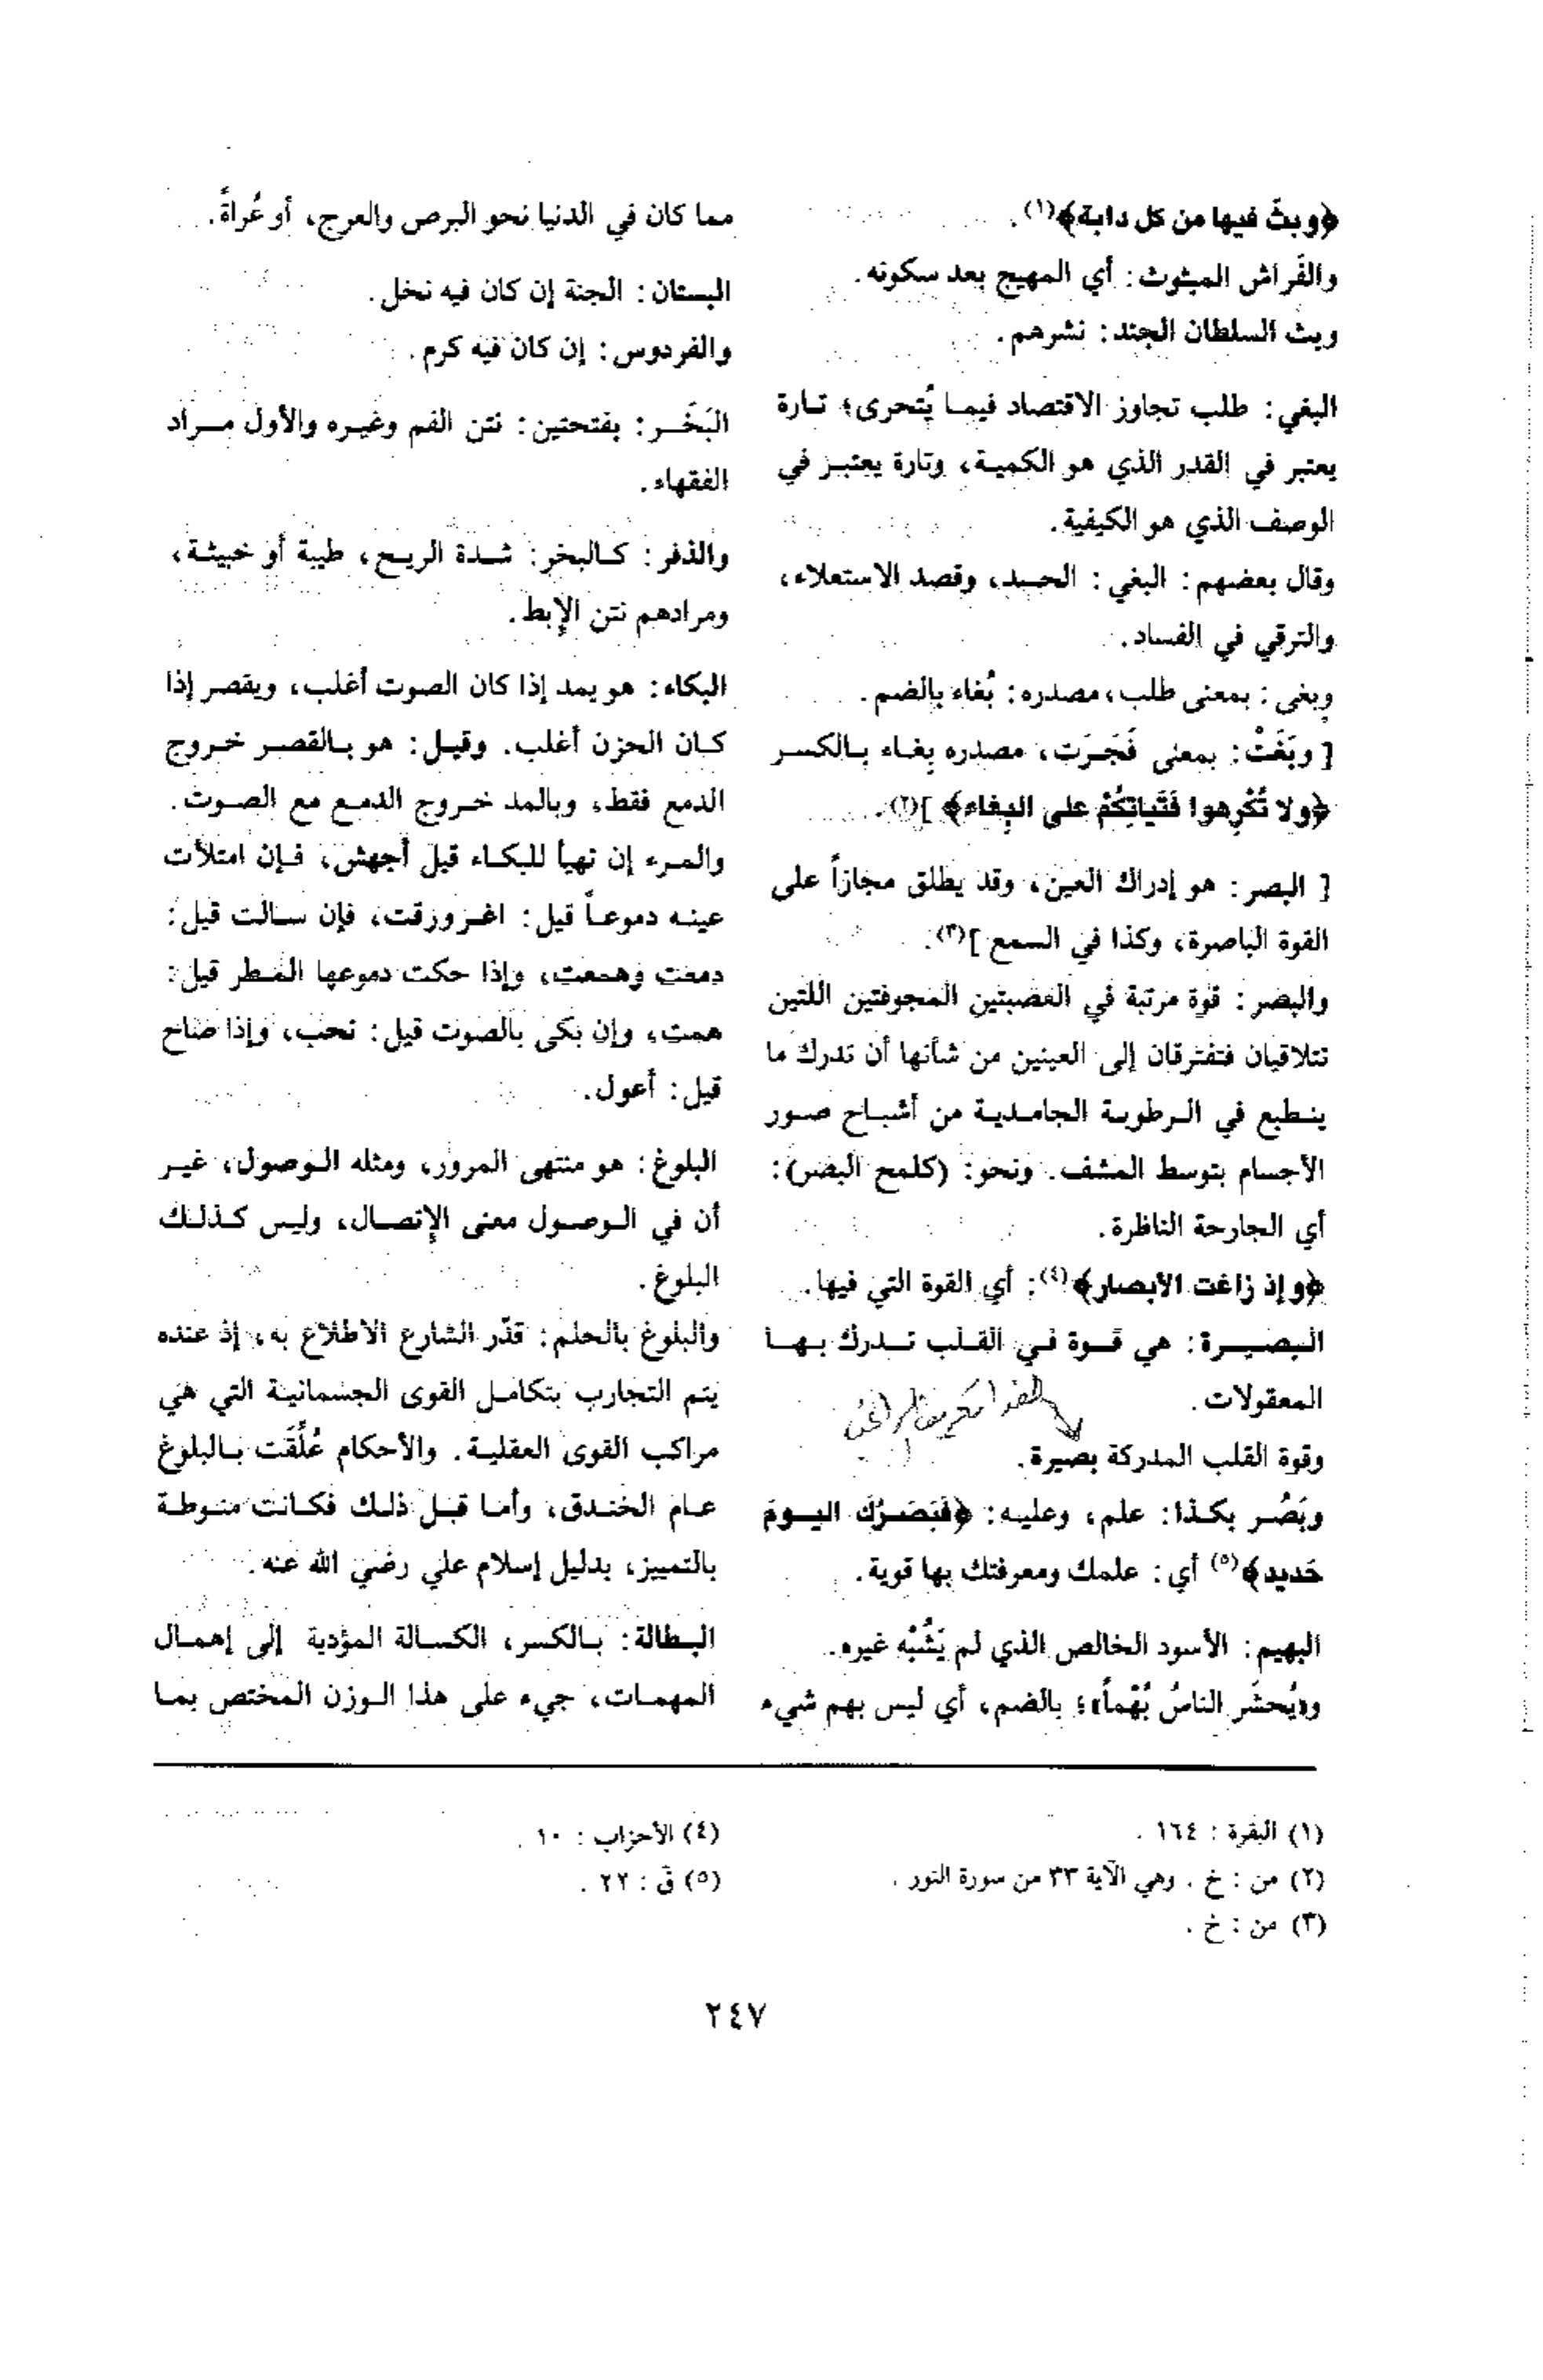 ﴿وبثّ فيها من كل دابة﴾(١).
والفَراش المبثوث: أي المهيج بعد سكونه.
وبث السلطان الجند: نشرهم.
البغي: طلب تجاوز الاقتصاد فيما يُتحرى؛ تارة
يعتبر في القدر الذي هو الكمية، وتارة يعتبر في
الوصف الذي هو الكيفية.
وقال بعضهم: البغي: الحسد، وقصد الاستعلاء،
والترقي في الفساد.
وبغى: بمعنى طلب، مصدره: بُغاء بالضم.
[ وبَغَتْ: بمعنى فَجَرَت، مصدره بِغاء بالكسر
﴿ولا تُكْرِهوا فَتَياتِكُمْ على البِغاء﴾ ](٢).
[ البصر: هو إدراك العين، وقد يطلق مجازاً على
القوة الباصرة، وكذا في السمع ](٣).
والبصر: قوة مرتبة في العصبتين المجوفتين اللتين
تتلاقيان فتفترقان إلى العينين من شأنها أن تدرك ما
ينطبع في الرطوبة الجامدية من أشباح صور
الأجسام بتوسط المشف. ونحو: (كلمح البصر):
أي الجارحة الناظرة.
﴿وإذ زاغت الأبصار﴾(٤): أي القوة التي فيها.
البصيرة: هي قوة في القلب تدرك بها
المعقولات.
وقوة القلب المدركة بصيرة.
وبَصُر بكذا: علم، وعليه: ﴿فَبَصَرُكَ اليومَ
حَديد﴾(٥) أي: علمك ومعرفتك بها قوية.
البهيم: الأسود الخالص الذي لم يَشُبْه غيره.
و«يُحشَر الناسُ بُهْماً»؛ بالضم، أي ليس بهم شيء
مما كان في الدنيا نحو البرص والعرج، أو عُراةً.
البستان: الجنة إن كان فيه نخل.
والفردوس: إن كان فيه كرم.
البَخَر: بفتحتين: نتن الفم وغيره والأول مراد
الفقهاء.
والذفر: كالبخر: شدة الريح، طيبة أو خبيثة،
ومرادهم نتن الإبط.
البكاء: هو يمد إذا كان الصوت أغلب، ويقصر إذا
كان الحزن أغلب. وقيل: هو بالقصر خروج
الدمع فقط، وبالمد خروج الدمع مع الصوت.
والمرء إن تهيأ للبكاء قيل أجهش، فإن امتلأت
عينه دموعاً قيل: اغرورقت، فإن سالت قيل:
دمعت وهمعت، وإذا حكت دموعها المطر قيل:
همت، وإن بكى بالصوت قيل: نحب، وإذا صاح
قيل: أعول.
البلوغ: هو منتهى المرور، ومثله الوصول، غير
أن في الوصول معنى الإتصال، وليس كذلك
البلوغ.
والبلوغ بالحلم: قدّر الشارع الاطلاع به، إذ عنده
يتم التجارب بتكامل القوى الجسمانية التي هي
مراكب القوى العقلية. والأحكام عُلِّقَت بالبلوغ
عام الخندق، وأما قبل ذلك فكانت منوطة
بالتمييز، بدليل إسلام علي رضي الله عنه.
البطالة: بالكسر، الكسالة المؤدية إلى إهمال
المهمات، جيء على هذا الوزن المختص بما
(١) البقرة : ١٦٤ .
(٢) من : خ . وهي الآية ٣٣ من سورة النور .
(٣) من : خ .
(٤) الأحزاب : ١٠ .
(٥) قَ : ٢٢ .
٢٤٧